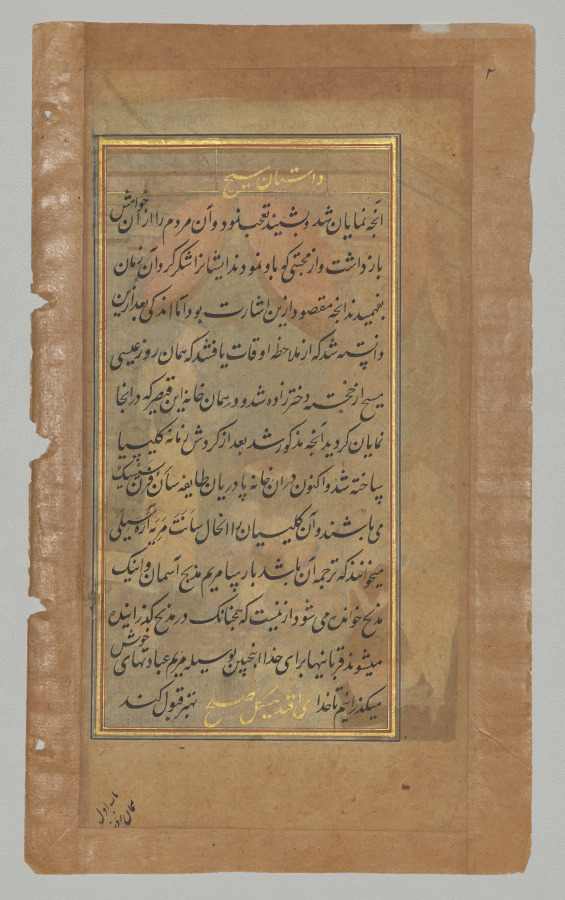 ۲
داستان مسیح
آنچه نمایان شد و بشنیدند تعجب نمود و آن مردم را از آن خواهش
بازداشت و از محبتی که باو نمودند ایشانرا شکر کرد آن زمان
بفهمیدند آنچه مقصود ازین اشارت بود اما اندکی بعد ازین
دانسته شد که از ملاحظه اوقات یافتند که همان روز عیسی
مسیح از خجسته دختر زاده شد و در همان خانه این قیصر که در آنجا
نمایان گردید آنچه مذکور شد بعد از گردش زمانه کلیسیا
ساخته شد و اکنون در آن خانه پادریان طایفه سان فرن سیسک
می باشند و آن کلیسیا را الحال سانت مریه اره سیلی
میخوانند که ترجمه آن باشد بار سیا مریم مذبح آسمان و اینک
مذبح خوانده می شود ازینست که همچنانک در مذبح گذرانیده
میشوند قربانیها برای خدا همچنین بوسیله مریم عبادتهای خویش
میگذرانیم تا خدا می افتد هیکل صلح بهتر قبول کند